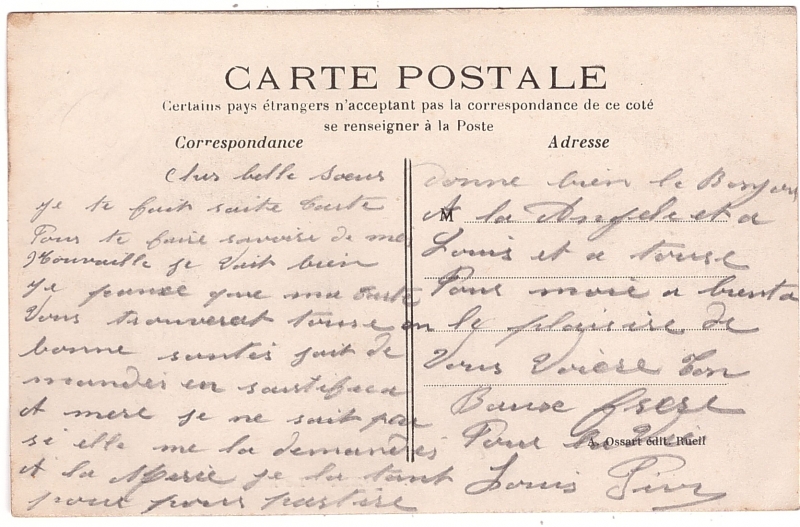 CARTE POSTALE
Certains pays étrangers n'acceptent pas la correspondance de ce coté
se renseigner à la Poste
Correspondance
Cher belle soeur
je te fait saite Carte
Pour te faire savoire de mes
Nouvaille je Vait bien
je pance que ma Carte
Vous trouverat touse en
bonne santés fait de
mander en
A mere je ne sait pas
si elle me la demandres
A la Merie je la
pour partire
Adresse
donne bien le Bonjour
M
A la Angele et a
Louis et a touse
Pour moie a bienta
le plaisire de
Vous Voiere ton
Baux frere
Pour la Vie
A. Ossart édit. Rueil
Louis